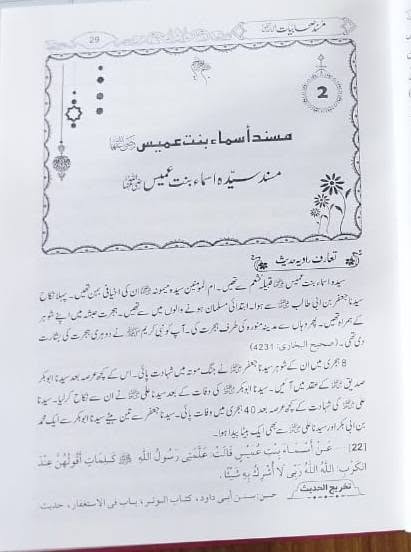 مسند صحابیات
29
2
مسند أسماء بنت عميس رضی اللہ عنہا
مسند سیّدہ اسماء بنت عمیس رضی اللہ عنہا
تعارف راویہ حدیث
سیدہ اسماء بنت عمیس رضی اللہ عنہا قبیلہ خثعم سے تھیں۔ ام المؤمنین سیدہ میمونہ رضی اللہ عنہا ان کی اخیافی بہن تھیں۔ پہلا نکاح
سیدنا جعفر بن ابی طالب رضی اللہ عنہ سے ہوا۔ ابتدائی مسلمان ہونے والوں میں سے تھیں۔ ہجرت حبشہ میں اپنے شوہر
کے ہمراہ تھیں۔ پھر وہاں سے مدینہ منورہ کی طرف ہجرت کی۔ آپ کو نبی کریم ﷺ نے دو ہجری ہجرت کی بشارت
دی تھی۔ (صحيح البخاری: 4231)
8 ہجری میں ان کے شوہر سیدنا جعفر رضی اللہ عنہ نے جنگ موتہ میں شہادت پائی۔ اس کے کچھ عرصہ بعد سیدنا ابوبکر
صدیق رضی اللہ عنہ کے عقد میں آئیں۔ سیدنا ابوبکر رضی اللہ عنہ کی وفات کے بعد سیدنا علی رضی اللہ عنہ نے ان سے نکاح کر لیا۔ سیدنا
علی رضی اللہ عنہ کی شہادت کے کچھ عرصہ بعد 40 ہجری میں وفات پائی۔ سیدنا جعفر سے تین بیٹے سیدنا ابوبکر سے ایک محمد
بن ابی بکر اور سیدنا علی رضی اللہ عنہ سے بھی ایک بیٹا پیدا ہوا۔
[22] عَنْ أَسْمَاءَ بِنْتِ عُمَيْسٍ قَالَتْ: عَلَّمَنِي رَسُولُ اللهِ ﷺ كَلِمَاتٍ أَقُولُهُنَّ عِنْدَ
الْكَرْبِ: اللهُ اللهُ رَبِّي لَا أُشْرِكُ بِهِ شَيْئًا.
تخریج الحدیث حسن: سنن أبي داود، كتاب الوتر، باب فى الاستغفار، حديث